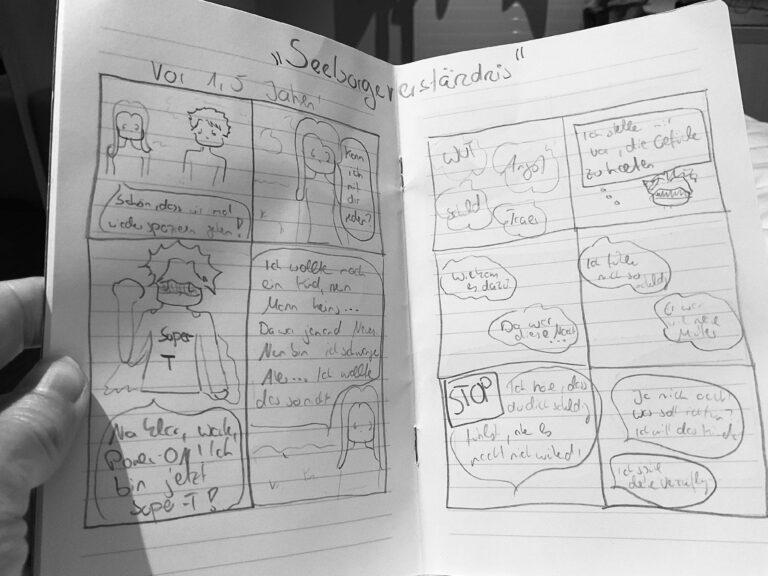 "Seelsorgeverständnis"
Vor 1,5 Jahren!
Schön, dass wir mal
wieder spazieren gehen!
Kann
ich
mit
dir
reden?
Super
T
Na klar, warte,
Power-ON! Ich
bin jetzt
Supe-T!
Ich wollte noch
ein Kind, mein
Mann keins...
Da war jemand Neues.
Nun bin ich schwanger
Aber... Ich wollte
das so nicht
WUT
Angst
Schuld
Trauer
Ich stelle mir
vor, die Gefühle
zu halten
Wie kam
es dazu?
Da war
diese Nacht
...
Ich fühle
mich so
schuldig
Er war
STOP
Ich höre, dass
du dich schuldig
fühlst,
Ja mich auch
was soll ich tun?
Ich will das Kind
Ich spüre
deine Verzweiflg